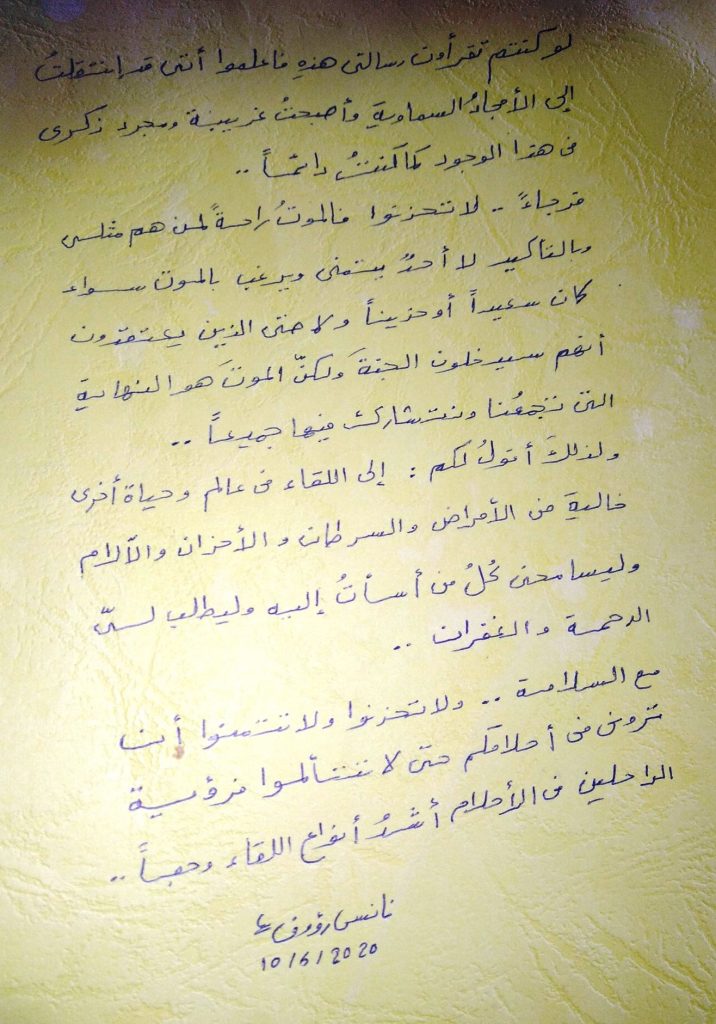 لو كنتم تقرأون رسالتي هذهِ فاعلموا أنني قد إنتقلتُ
إلى الأمجادُ السماويةِ وأصبحتُ غريبة ومجرد ذكرى
في هذا الوجود كما كنتُ دائماً ..
فرجاءً .. لا تحزنوا فالموتُ راحةً لمن هم مثلي
وبالتأكيد لا أحدٌ يتمنى ويرغب بالموت سواء
كان سعيداً أو حزيناً ولا حتى الذين يعتقدون
أنهم سيدخلون الجنة وَلكنّ الموتَ هو النهاية
التي تجمعُنا ونتشارك فيها جميعاً ..
ولذلكَ أقولُ لكم : إلى اللقاء في عالم وحياة أخرى
خالية من الأمراض والسرطان والأحزان والآلام
وليسامحني كُلُ من أسأتُ إليه وليطلب لي
الرحمة والغفران ..
مع السلامة .. ولا تحزنوا ولا تتمنوا أن
تروني في أحلامكم حتى لا تتألموا فرؤية
الراحلين في الأحلام أشدُ أنواع اللقاء وجعاً ..
نانسي رؤوف
10/6/2020